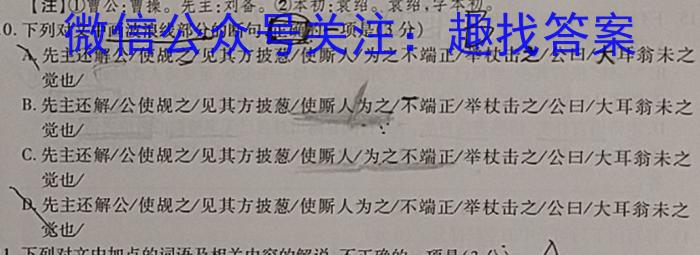 【注】①曹公:曹操。先主:刘备。②本初:袁绍。袁绍,字本初。
0. 下列对文中画波浪线部分的断句,正确的一项是(3分)
微信公众号关注：趣找答案
A. 先主还解/公使觇之/见其方披葱/使厮人为之不端正/举杖击之/公曰/大耳翁未之
觉也/
B. 先主还解/公使觇之/见其方披葱/使厮人为之/不端正/举杖击之/公曰/大耳翁未之
觉也/
C. 先主还解/公使觇之/见其方披葱/使厮人/为之不端正/举杖击之/公曰/大耳翁未之
觉也/
D. 先主还解公/使觇之/见其方披葱/使厮人为之/不端正/举杖击之/公曰/大耳翁未之
觉也/
1. 下列对文中加点的词语及相关内容的解说,不正确的一项是(3分)